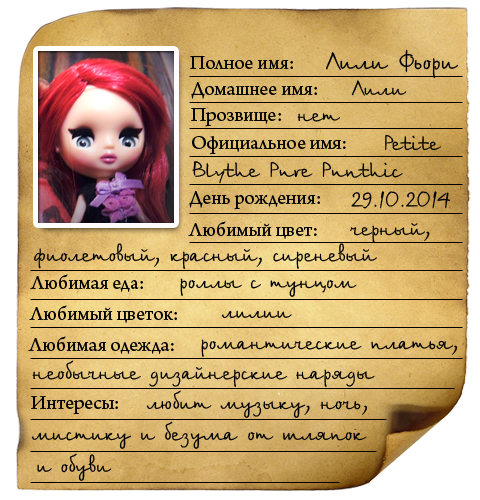 Полное имя: Лили Фьори
Домашнее имя: Лили
Прозвище: нет
Официальное имя: Petite
Blythe Pure Punthic
День рождения: 29.10.2014
Любимый цвет: черный,
фиолетовый, красный, сиреневый
Любимая еда: роллы с тунцом
Любимый цветок: лилии
Любимая одежда: романтические платья,
необычные дизайнерские наряды
Интересы: любит музыку, ночь,
мистику и безума от шляпок
и обуви